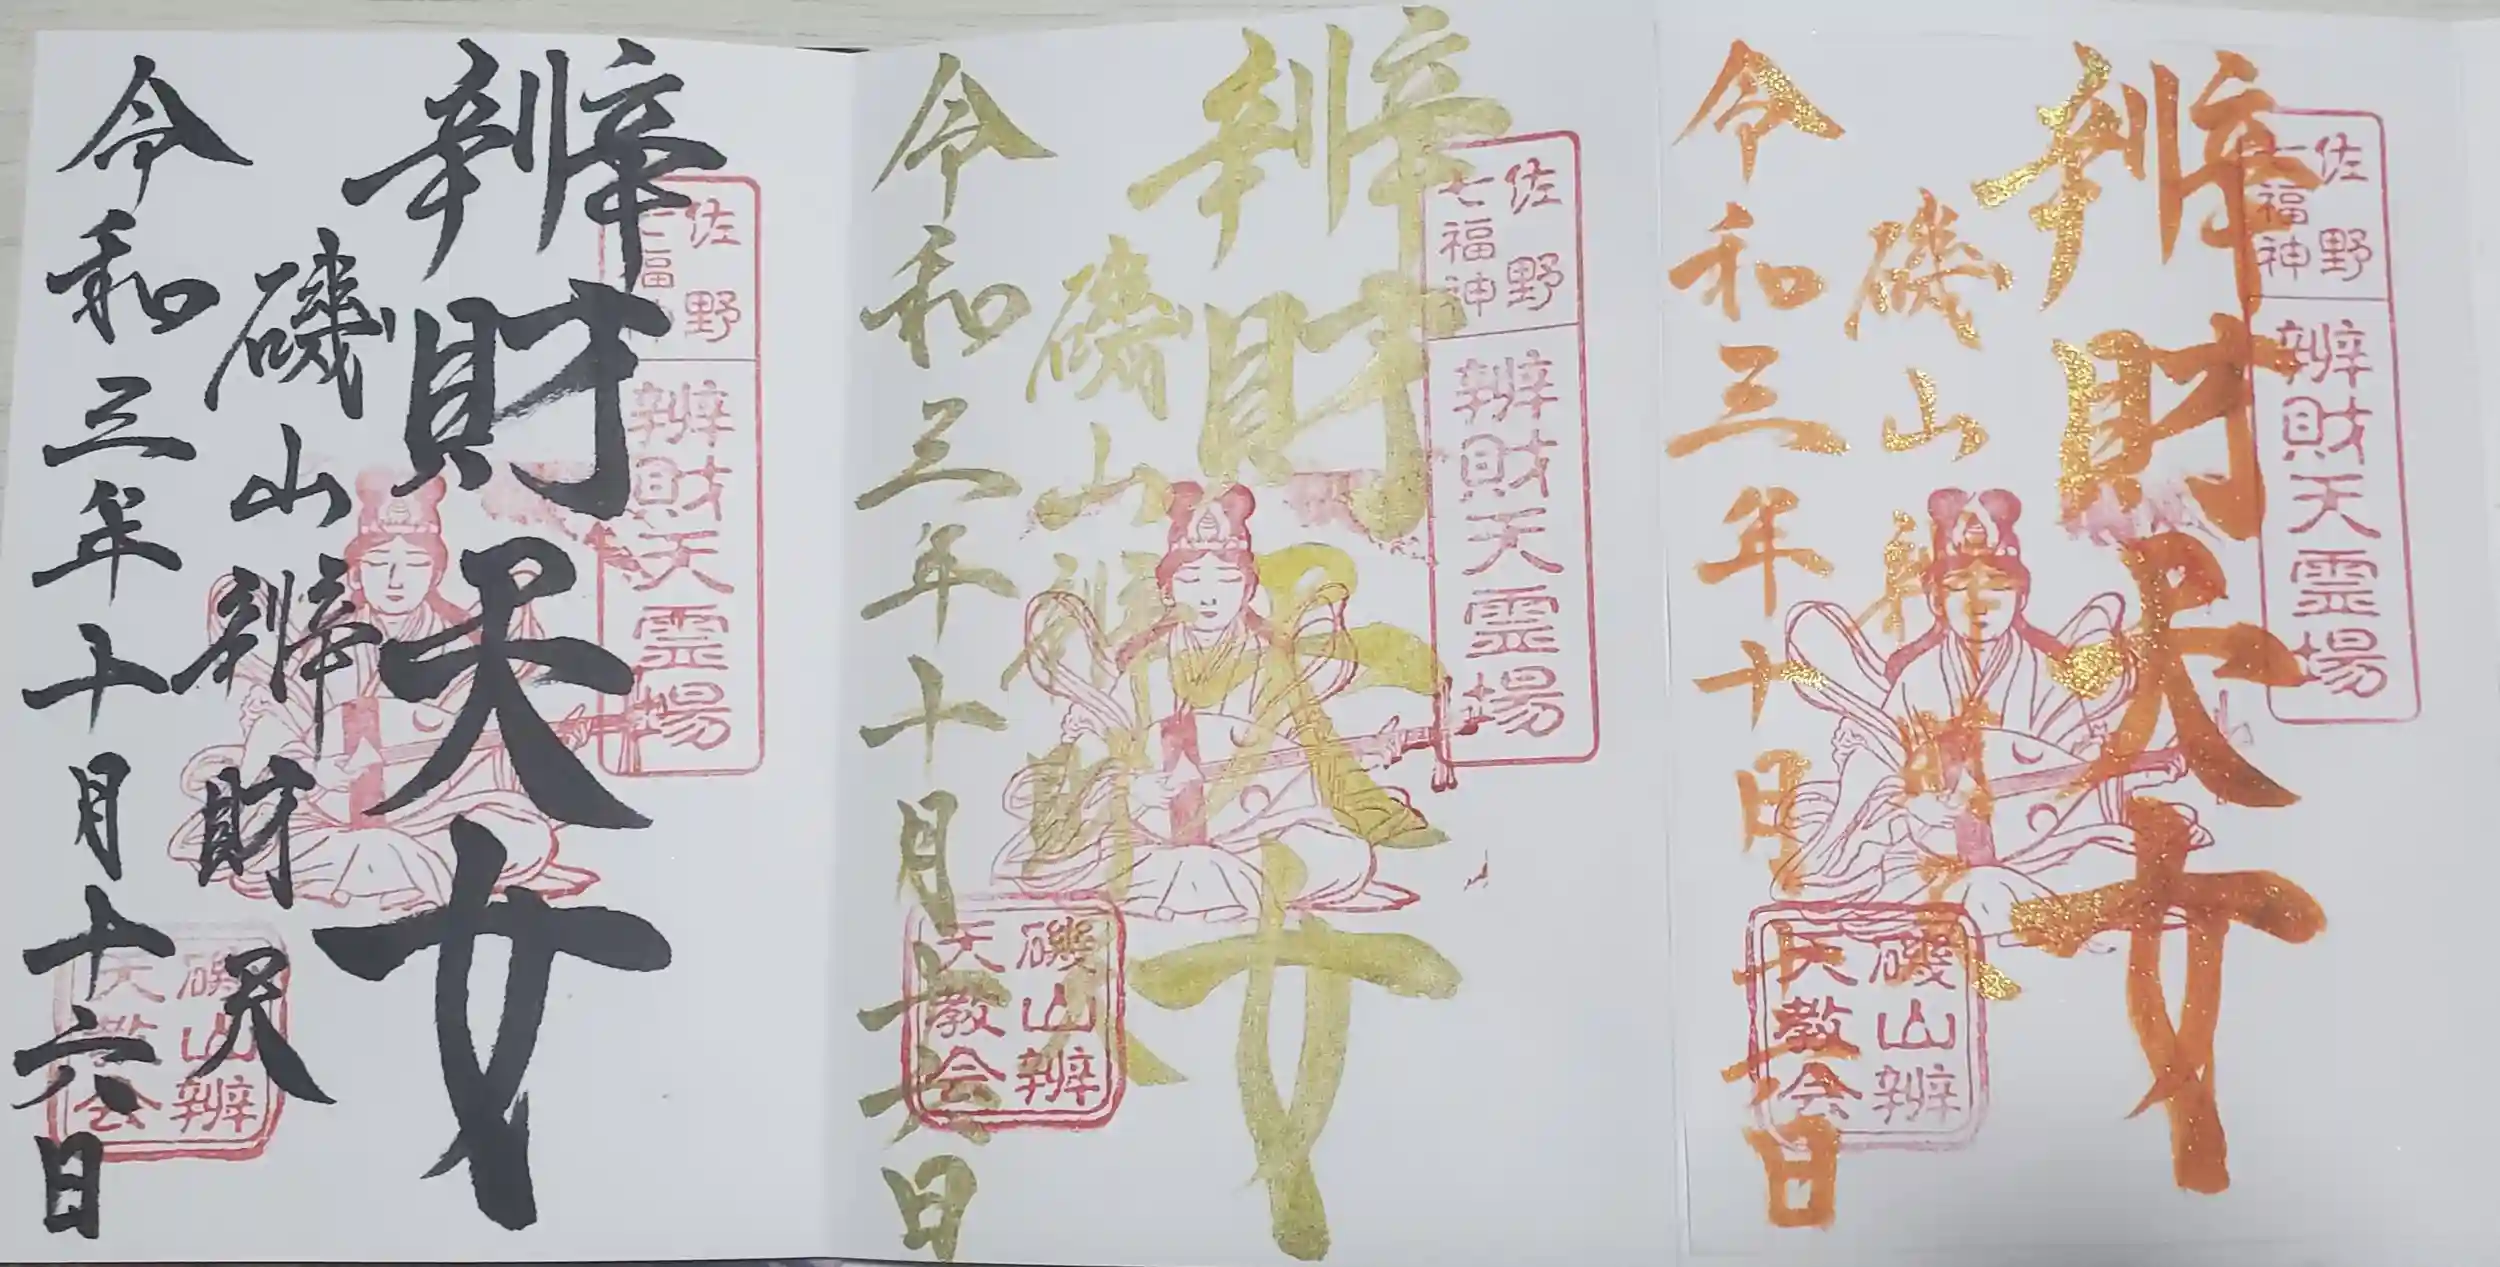 佐野
七福神
辨財天霊場
辨財天女
磯山辨財天
令和三年十月十六日
磯山辨
天教会
佐野
七福神
辨財天霊場
辨財天女
磯山辨財天
令和三年十月十六日
磯山辨
天教会
佐野
七福神
辨財天霊場
辨財天女
磯山辨財天
令和三年十月十六日
磯山辨
天教会